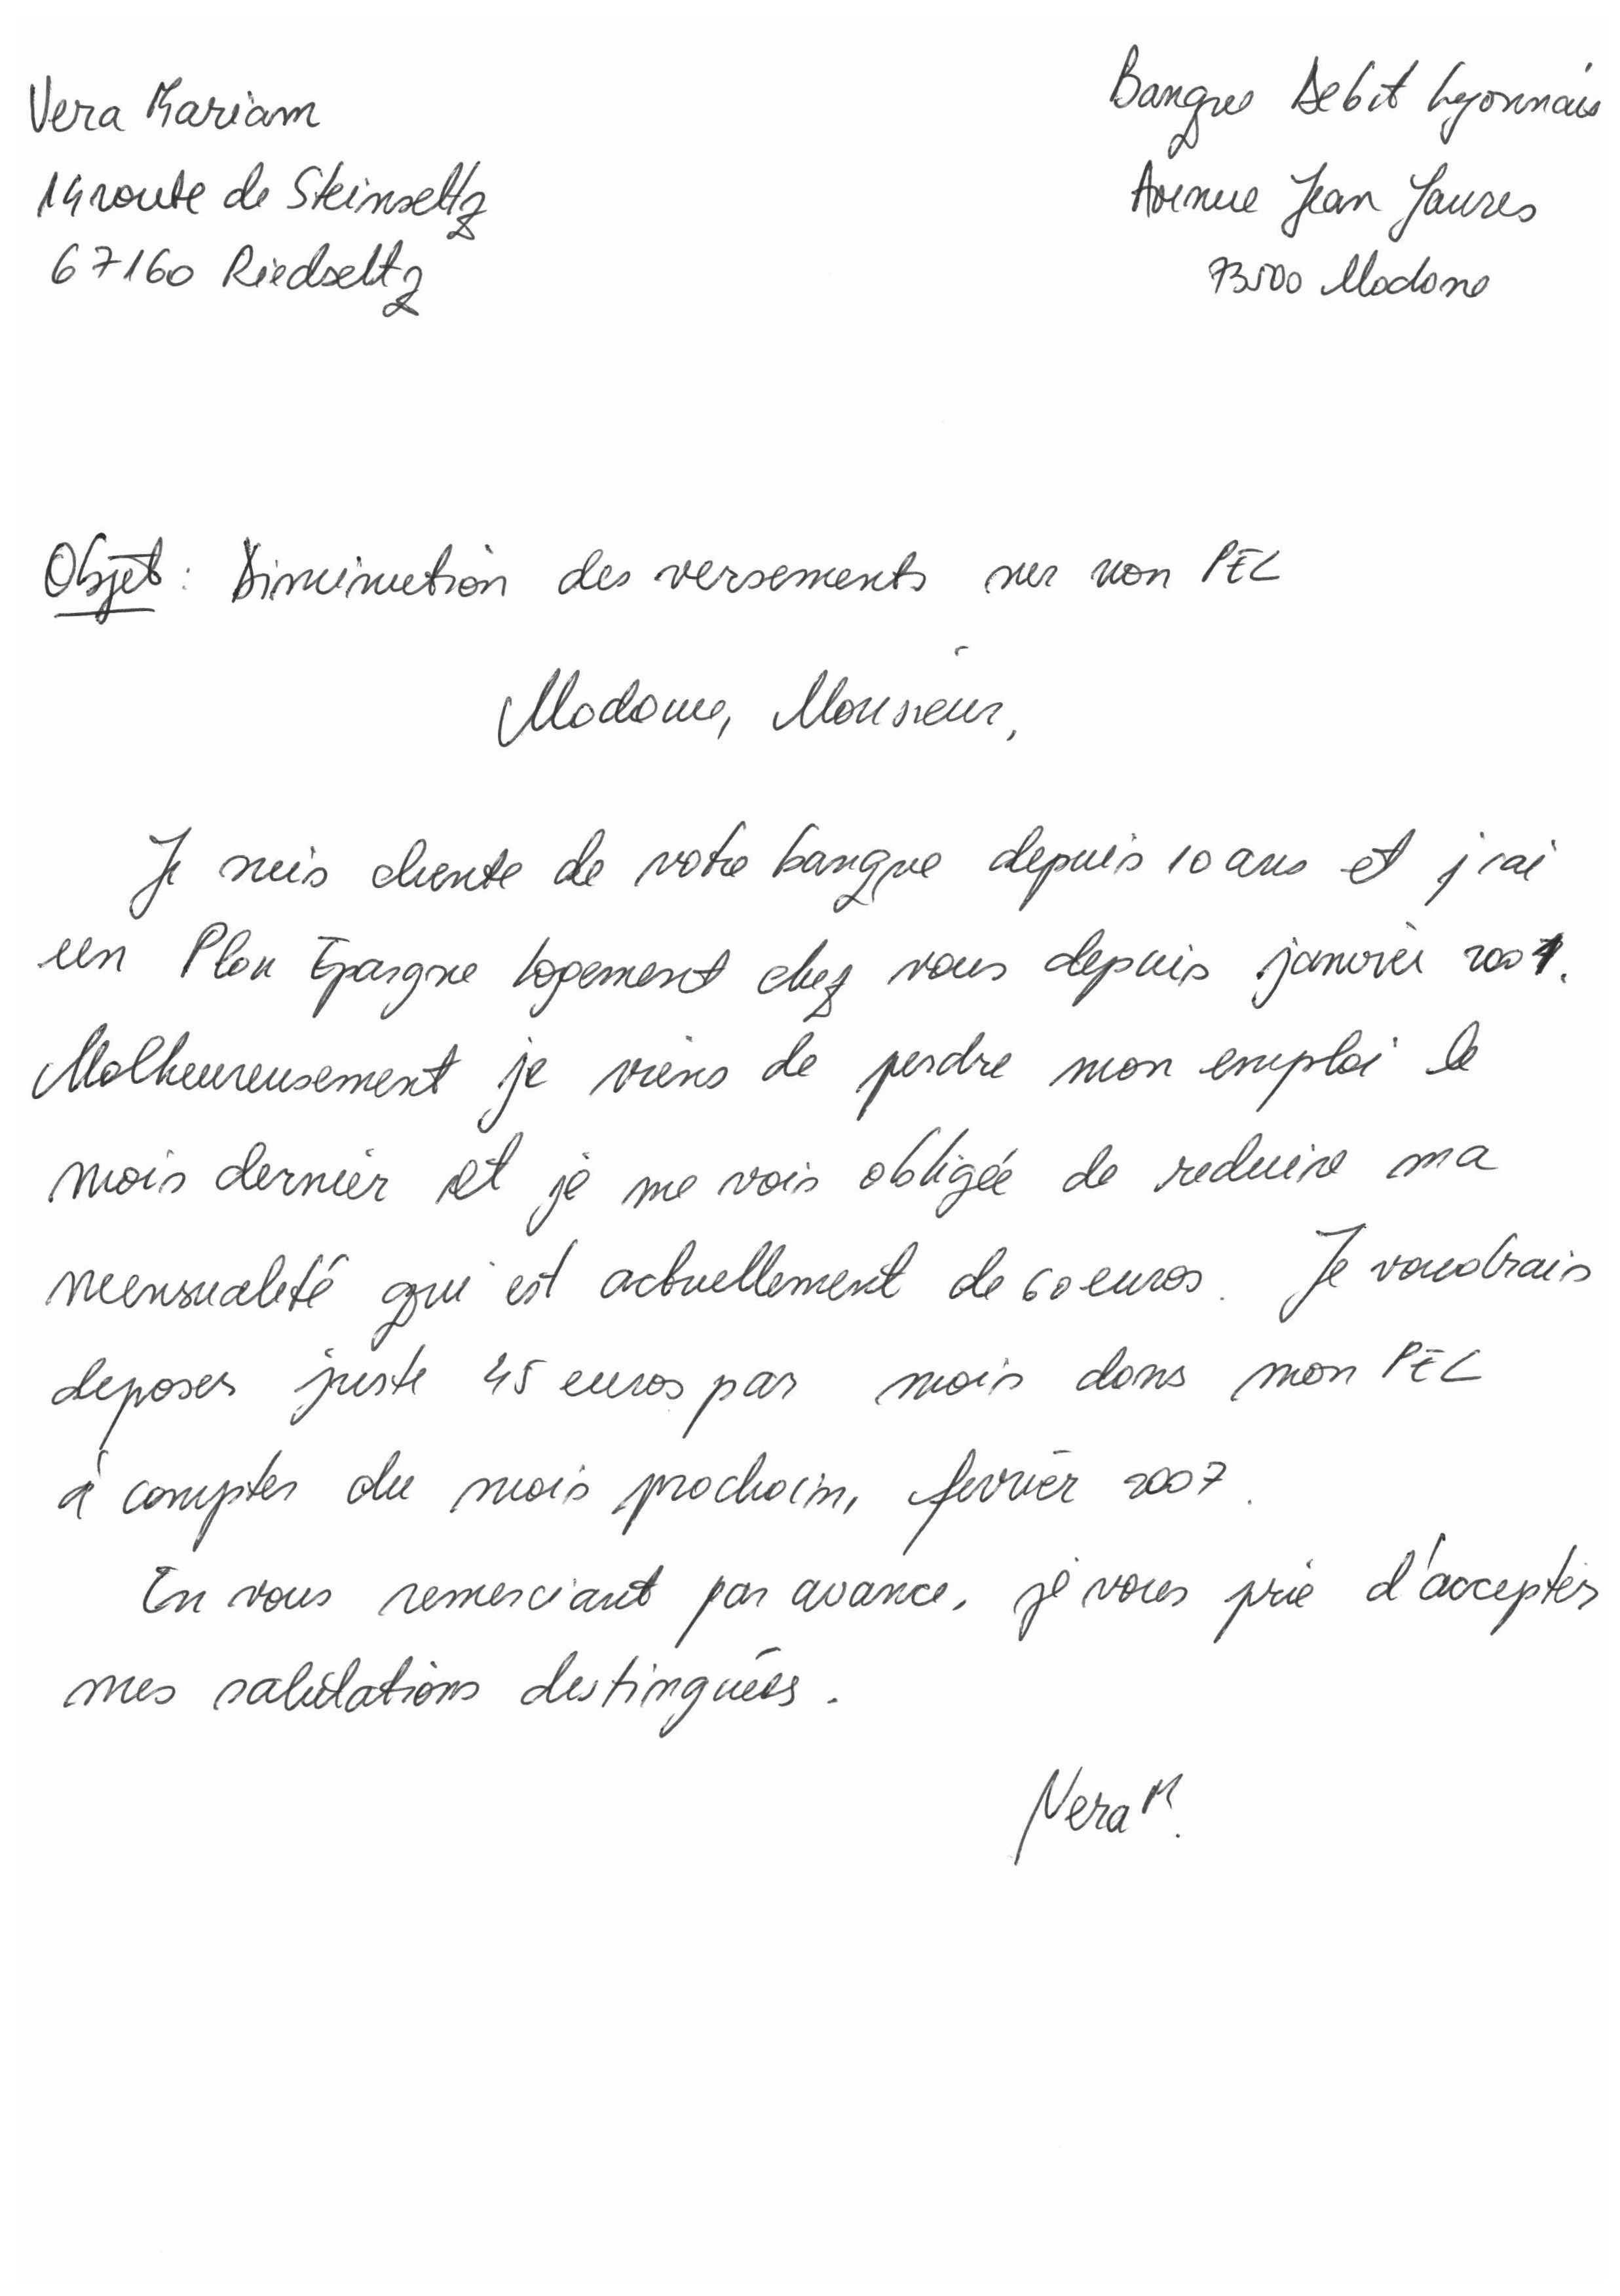 Vera Mariam
14 route de Steinseltz
67160 Riedseltz
Banque Debit Lyonnais
Avenue Jean Jaures
73500 Modane
Objet : Diminution des versements sur mon PEL
Madame, Monsieur,
Je suis cliente de votre banque depuis 10 ans et j'ai
un Plan Epargne Logement chez vous depuis janvier 2001.
Malheureusement je viens de perdre mon emploi le
mois dernier et je me vois obligée de reduire ma
mensualité qui est actuellement de 60 euros. Je voudrais
deposer juste 45 euros par mois dans mon PEL
à compter du mois prochain, fevrier 2007.
En vous remerciant par avance, je vous prie d'accepter
mes salutations distinguées.
Vera M.